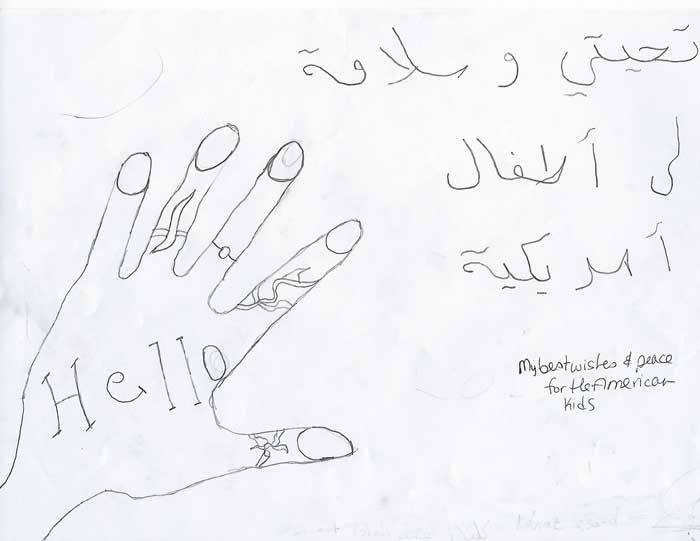 تحيتي و سلامة
لى أطفال
أمريكية
Hello
My best wishes & peace
for the American
Kids